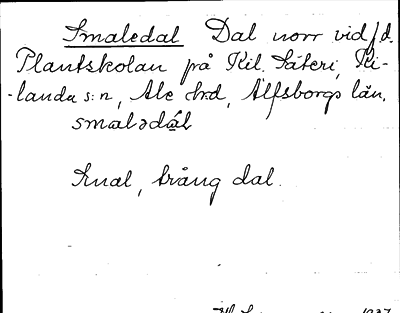 Smaledal Dal norr vid f.d.
Plantskolan på Kil. Säteri, Ki-
-landa s:n, Ale hrd, Älfsborgs län.
smalədál
Smal, trång dal.
1937